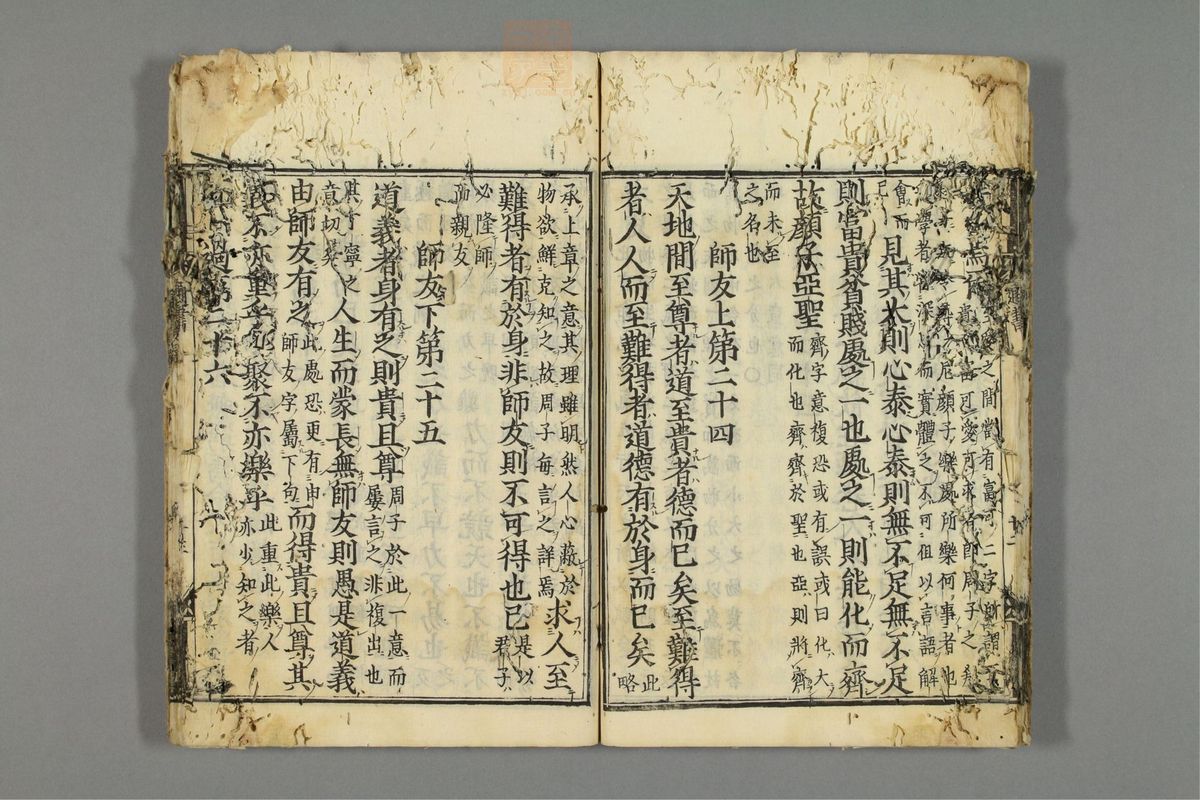 之間當有富可二字所謂至
貴至富可愛可求者即周子之
尼顏子樂處所樂何事者也
學者當深思而實體之不可但以言語解
會而
已
見其大則心泰心泰則無不足無不足
則富貴貧賤處之一也處之一則能化而齊
故顏子亞聖齊字意複恐或有誤或曰化大
而化也齊齊於聖也亞則將齊
而未至
之名也
師友上第二十四
天地間至尊者道至貴者德而已矣至難得
者人人而至難得者道德有於身而已矣此
略
承上章之意其理雖明然人心蔽於
物欲鮮克知之故周子每言之詳焉求人至
難得者有於身非師友則不可得也已是以
君子
必隆師
而親友
師友下第二十五
道義者身有之則貴且尊周子於此一意而
屢言之非複出也
其丁寧之
意切矣人生而蒙長無師友則愚是道義
由師友有之此處恐更有由
師友字屬下句而得貴且尊其
義不亦重乎其聚不亦樂乎此重此樂人
亦少知之者
過第二十六